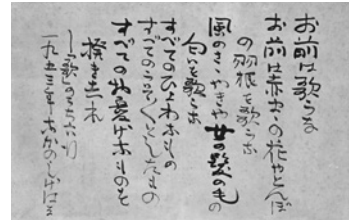 お前は歌うな
お前は赤まゝの花やとんぼ
の羽根を歌うな
風のさゝやきや女の髪の毛の
匂いを歌うな
すべてのひよわなもの
すべてのうそうそとしたもの
すべての物憂げなものを
撥き去れ
—「歌」のうちより
一九五三年 なかのしげはる